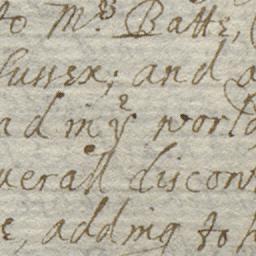 to Mrs Batte,
Sussex; and a
nd in ye world
uerall discon
e, adding to h